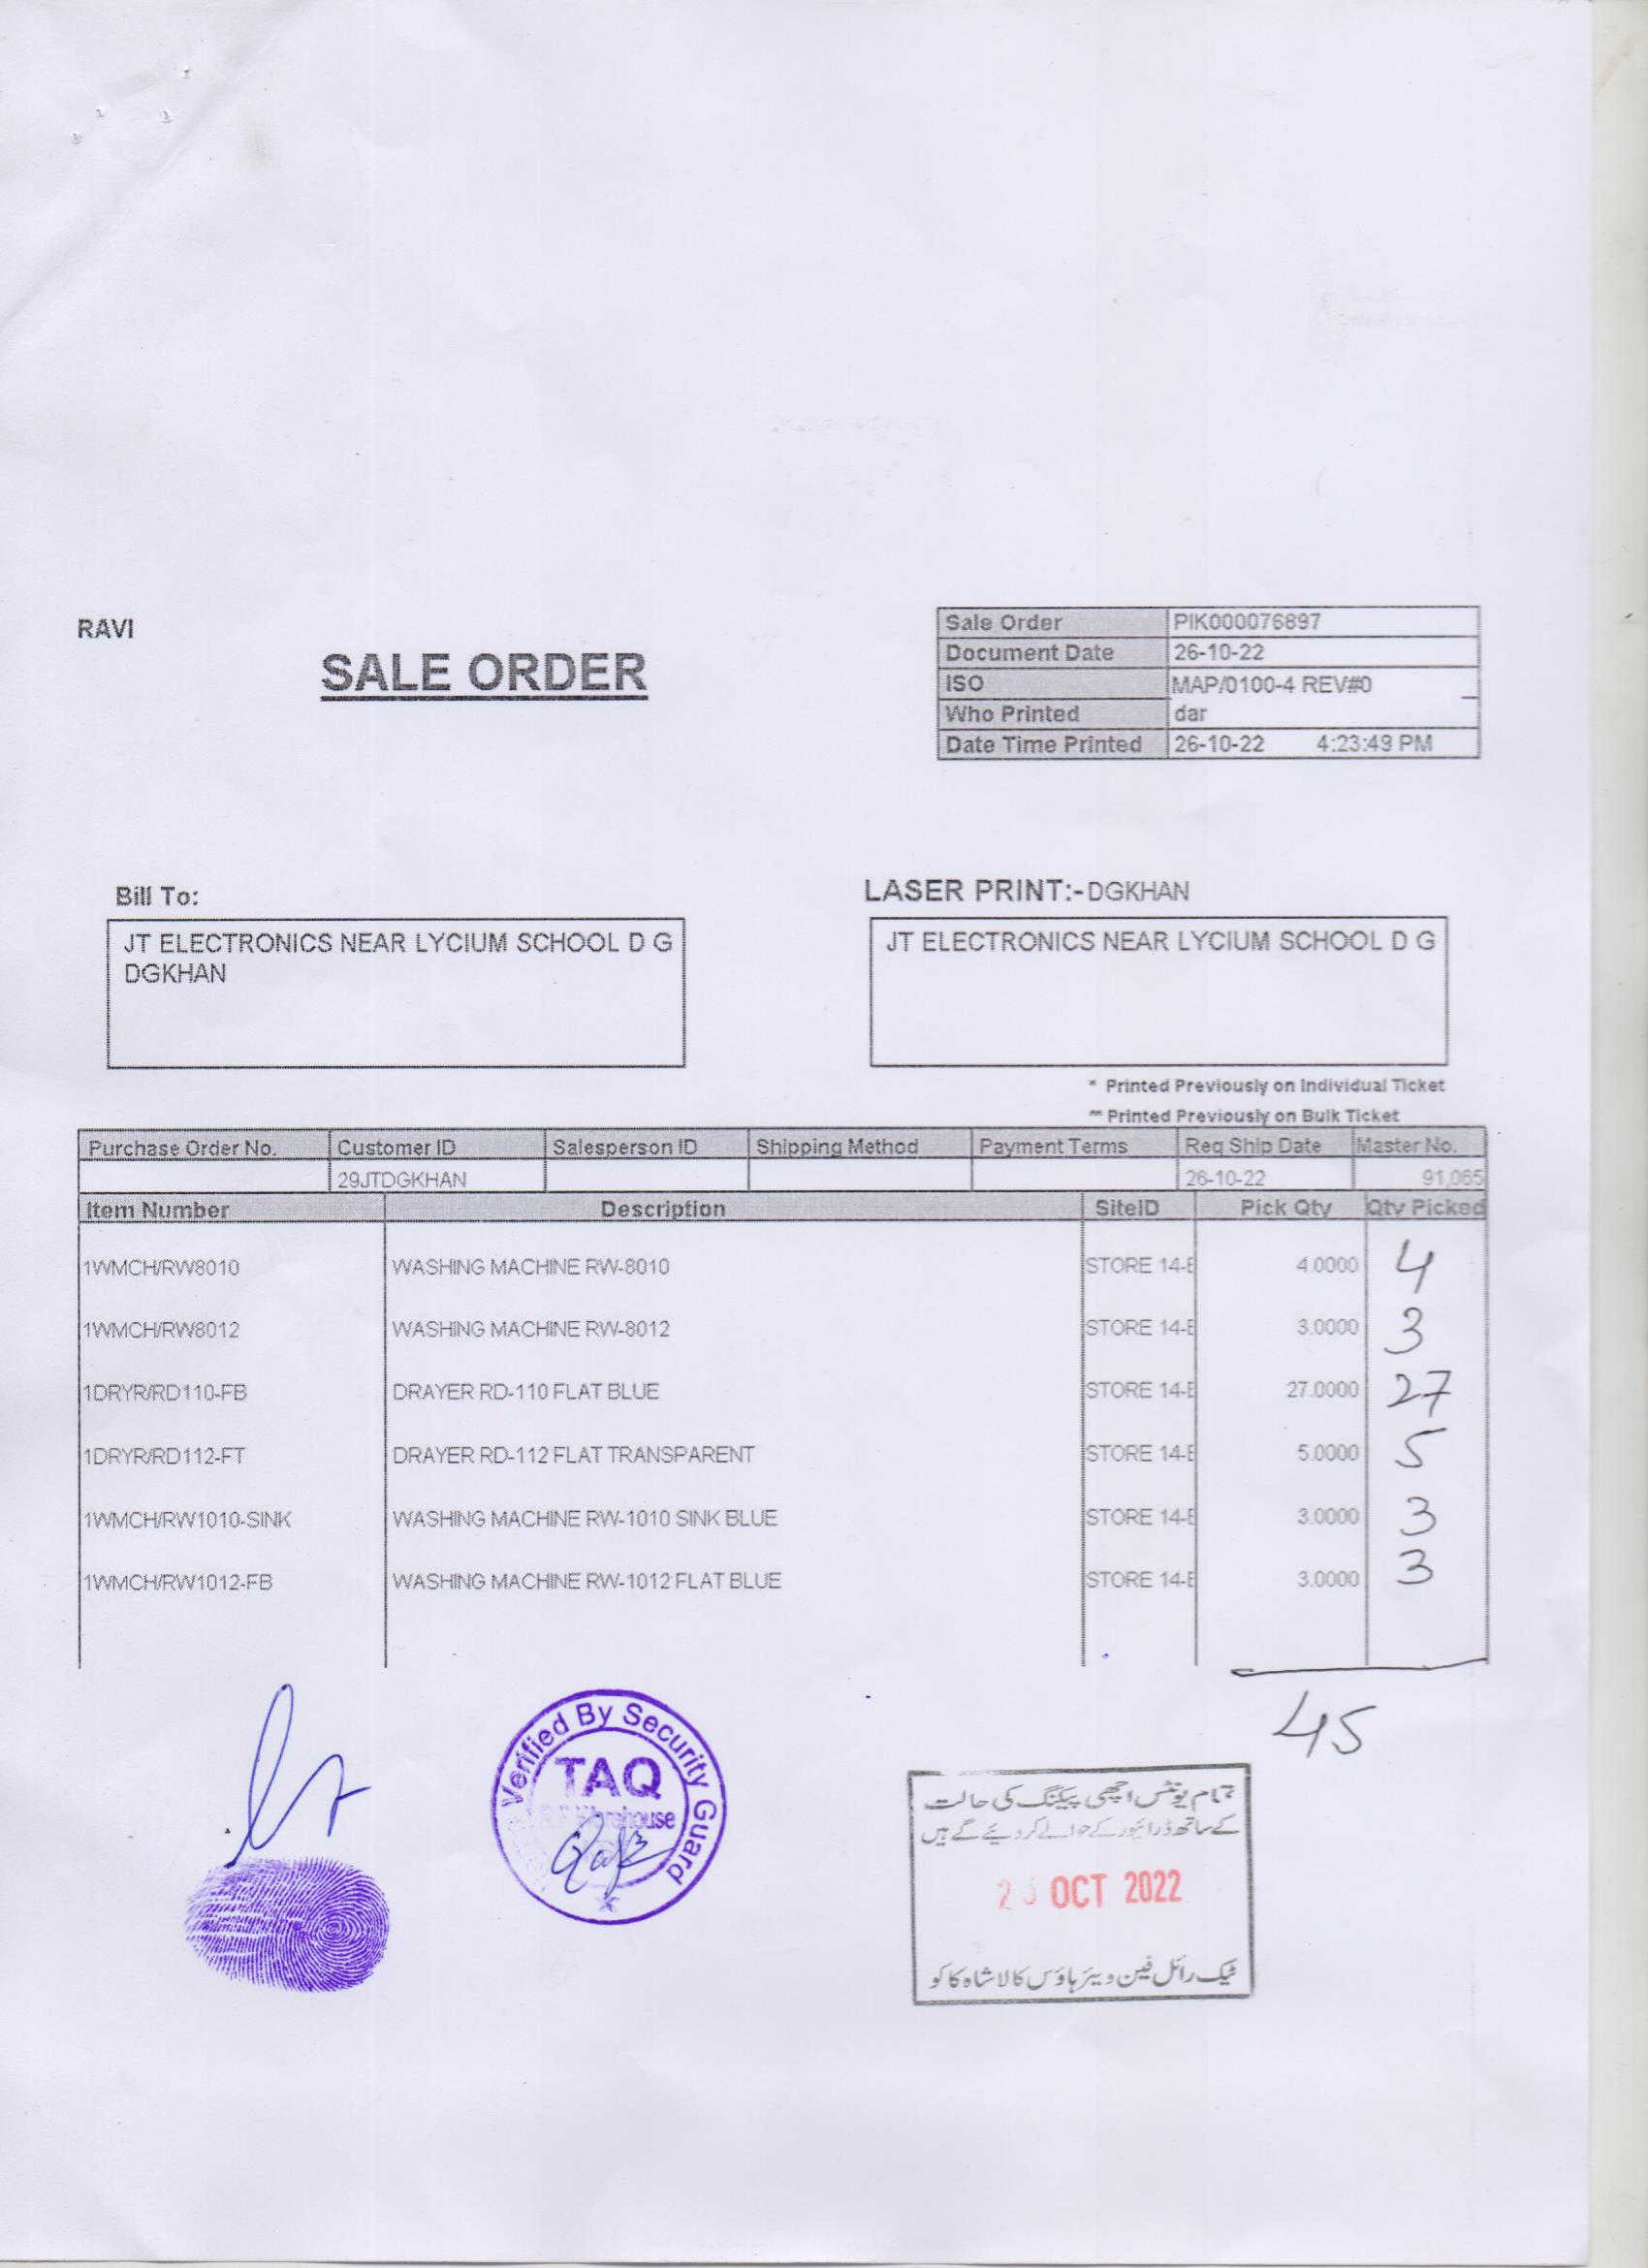 RAVI
SALE ORDER
Sale Order PIK000076897
Document Date 26-10-22
ISO MAP/0100-4 REV#0
Who Printed dar
Date Time Printed 26-10-22 4:23:49 PM
Bill To:
LASER PRINT:-DGKHAN
JT ELECTRONICS NEAR LYCIUM SCHOOL D G
DGKHAN
JT ELECTRONICS NEAR LYCIUM SCHOOL D G
* Printed Previously on Individual Ticket
** Printed Previously on Bulk Ticket
Purchase Order No. Customer ID Salesperson ID Shipping Method Payment Terms Req Ship Date Master No.
29JTDGKHAN 26-10-22 91,065
Item Number Description SiteID Pick Qty Qty Picked
1WMCH/RW8010 WASHING MACHINE RW-8010 STORE 14-E 4.0000 4
1WMCH/RW8012 WASHING MACHINE RW-8012 STORE 14-E 3.0000 3
1DRYR/RD110-FB DRAYER RD-110 FLAT BLUE STORE 14-E 27.0000 27
1DRYR/RD112-FT DRAYER RD-112 FLAT TRANSPARENT STORE 14-E 5.0000 5
1WMCH/RW1010-SINK WASHING MACHINE RW-1010 SINK BLUE STORE 14-E 3.0000 3
1WMCH/RW1012-FB WASHING MACHINE RW-1012 FLAT BLUE STORE 14-E 3.0000 3
45
Verified By Security Guard
TAQ
Warehouse
تمام یونٹس اچھی پیکنگ کی حالت
کے ساتھ ڈرائیور کے حوالے کر دیئے گے ہیں
OCT 2022
ٹیک رائل فین ویئر ہاؤس کالا شاہ کاکو